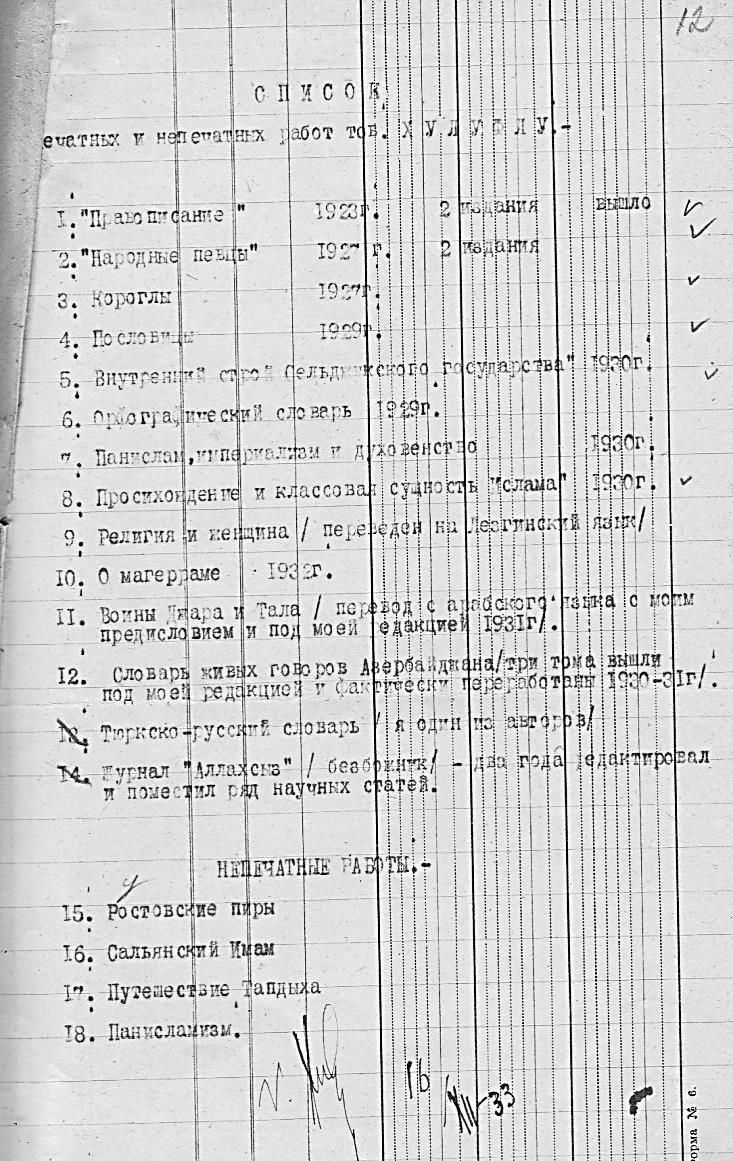 12
СПИСОК
ечатных и непечатных работ тов. ХУЛУФЛУ.-
1. "Правописание " 1923г. 2 издания вышло
2. "Народные певцы" 1927 г. 2 издания
3. Короглы 1927г.
4. Пословицы 1929г.
5. Внутренний строй Сельджукского государства" 1930г.
6. Орфографический словарь 1929г.
7. Панислам,империализм и духовенство 1930г.
8. Просихождение и классовая сущность Ислама" 1930г.
9. Религия и женщина / переведен на Лезгинский язык/
10. О магерраме 1932г.
11. Воины Джара и Тала / перевод с арабского языка с моим
предисловием и под моей редакцией 1931г/.
12. Словарь живых говоров Азербайджана/три тома вышли
под моей редакцией и фактически переработаны 1930-31г/.
13. Тюркско-русский словарь / я один из авторов/
14. Журнал "Аллахсыз" / безбожник/ - два года редактировал
и поместил ряд научных статей.
НЕПЕЧАТНЫЕ РАБОТЫ.-
15. Ростовские пиры
16. Сальянский Имам
17. Путешествие Тапдыха
18. Панисламизм.
16/XII-33
орма № 6.